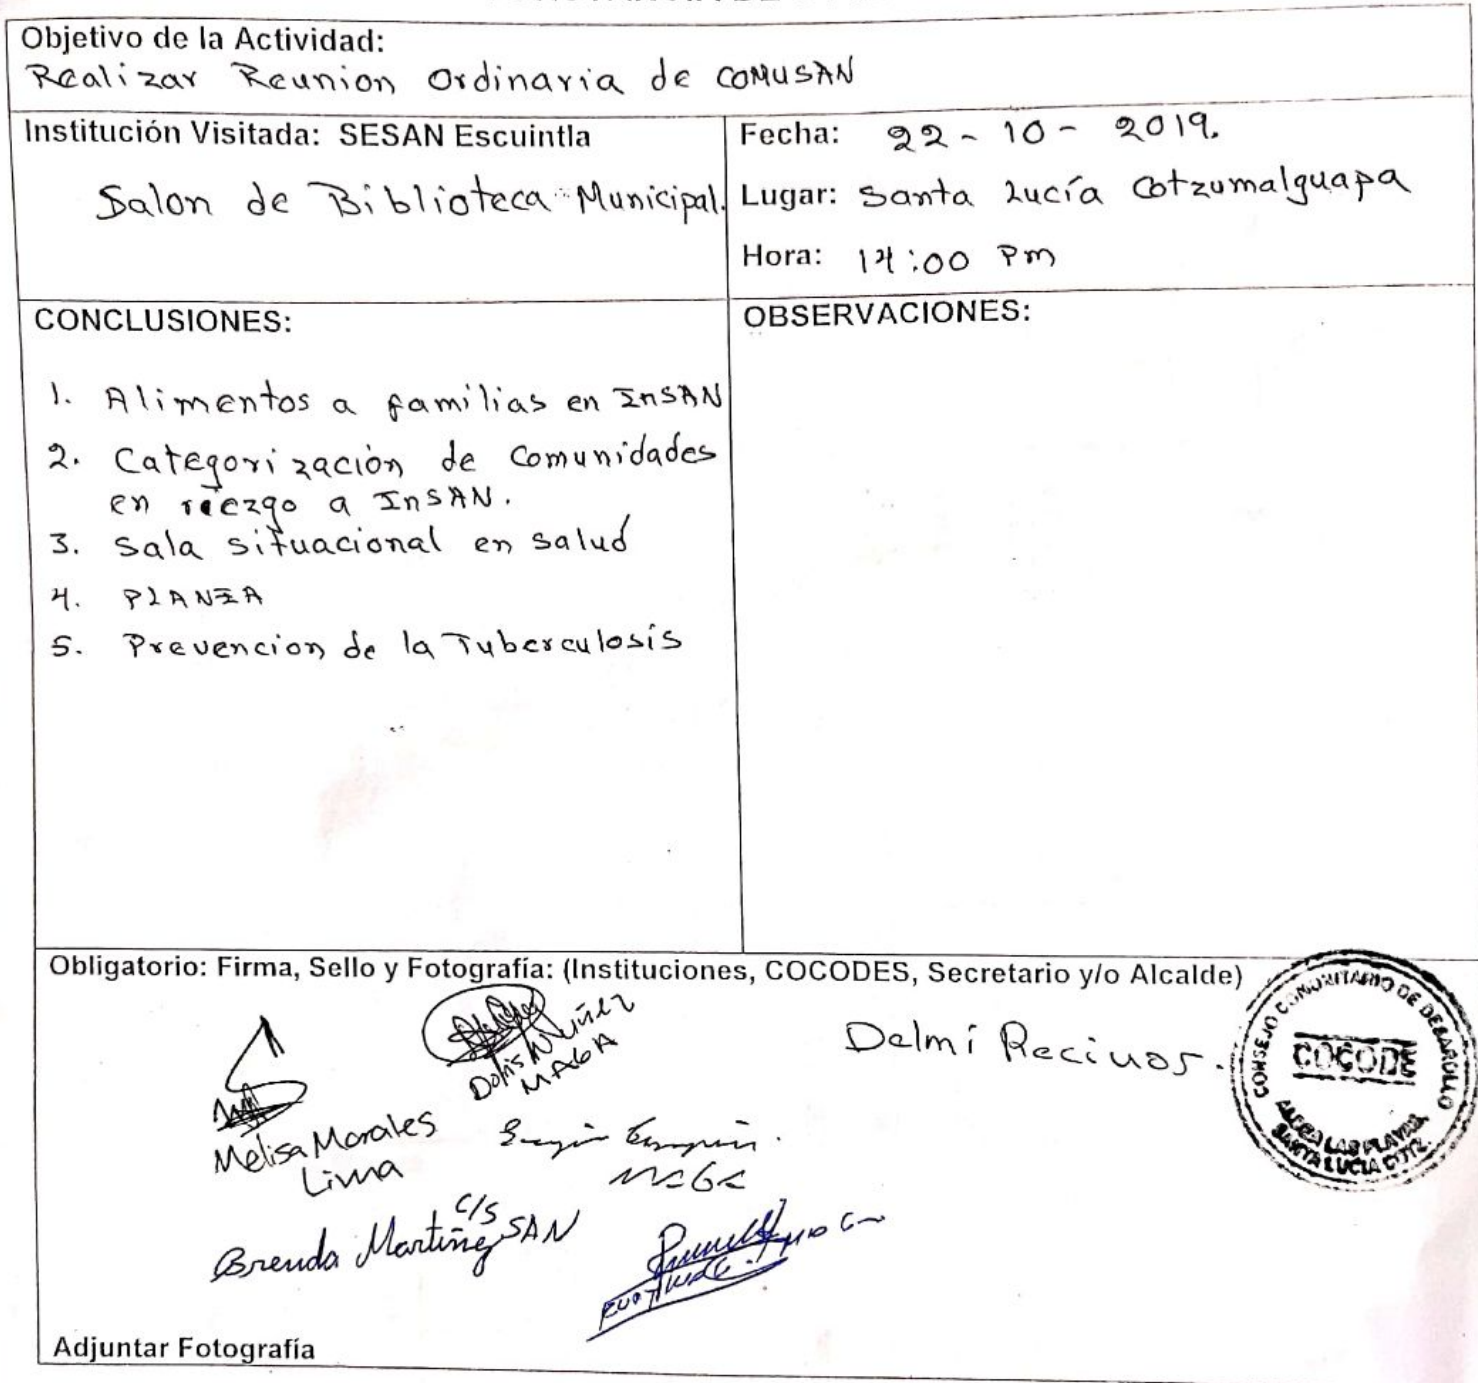 Objetivo de la Actividad:
Realizar Reunion Ordinaria de COMUSAN
Institución Visitada: SESAN Escuintla
Salon de Biblioteca Municipal.
Fecha: 22-10-2019.
Lugar: Santa Lucía Cotzumalguapa
Hora: 14:00 Pm
CONCLUSIONES:
1. Alimentos a familias en InSAN
2. Categorización de Comunidades
en riezgo a InSAN.
3. Sala situacional en salud
4. PLANIA
5. Prevencion de la Tuberculosis
OBSERVACIONES:
Obligatorio: Firma, Sello y Fotografía: (Instituciones, COCODES, Secretario y/o Alcalde)
Melisa Morales
Lima
Doris Nuñez
MAGA
Delmi Recinos.
CONSEJO COMUNITARIO DE DESARROLLO
COCODE
LAS PLAYAS,
SANTA LUCIA COTZ.
Brenda Martinez C/S
SAN
Adjuntar Fotografía